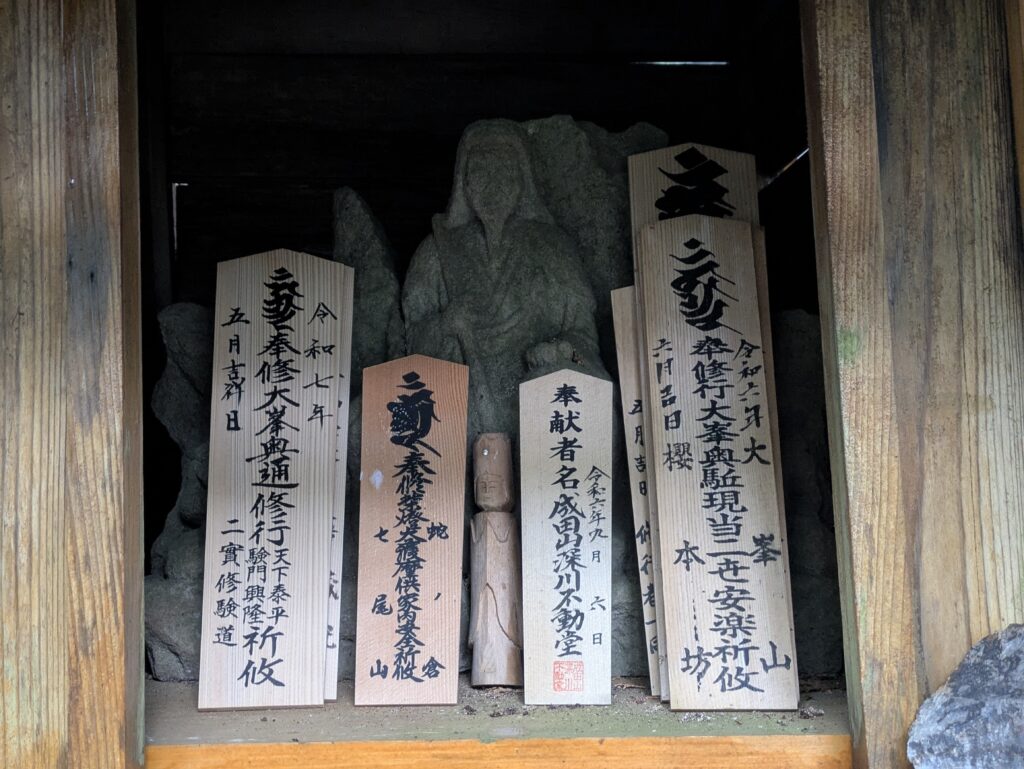 令和六年 大峯山
奉修行大峯奥駈現当二世安楽祈攸
六月吉日 櫻本坊
五月吉日 修行者一同
令和六年九月六日
奉献者名 成田山深川不動堂
蛇ノ倉
七尾山
令和七年
奉修大峯奥通修行 天下泰平 験門興隆 祈攸
五月吉祥日 二實修験道